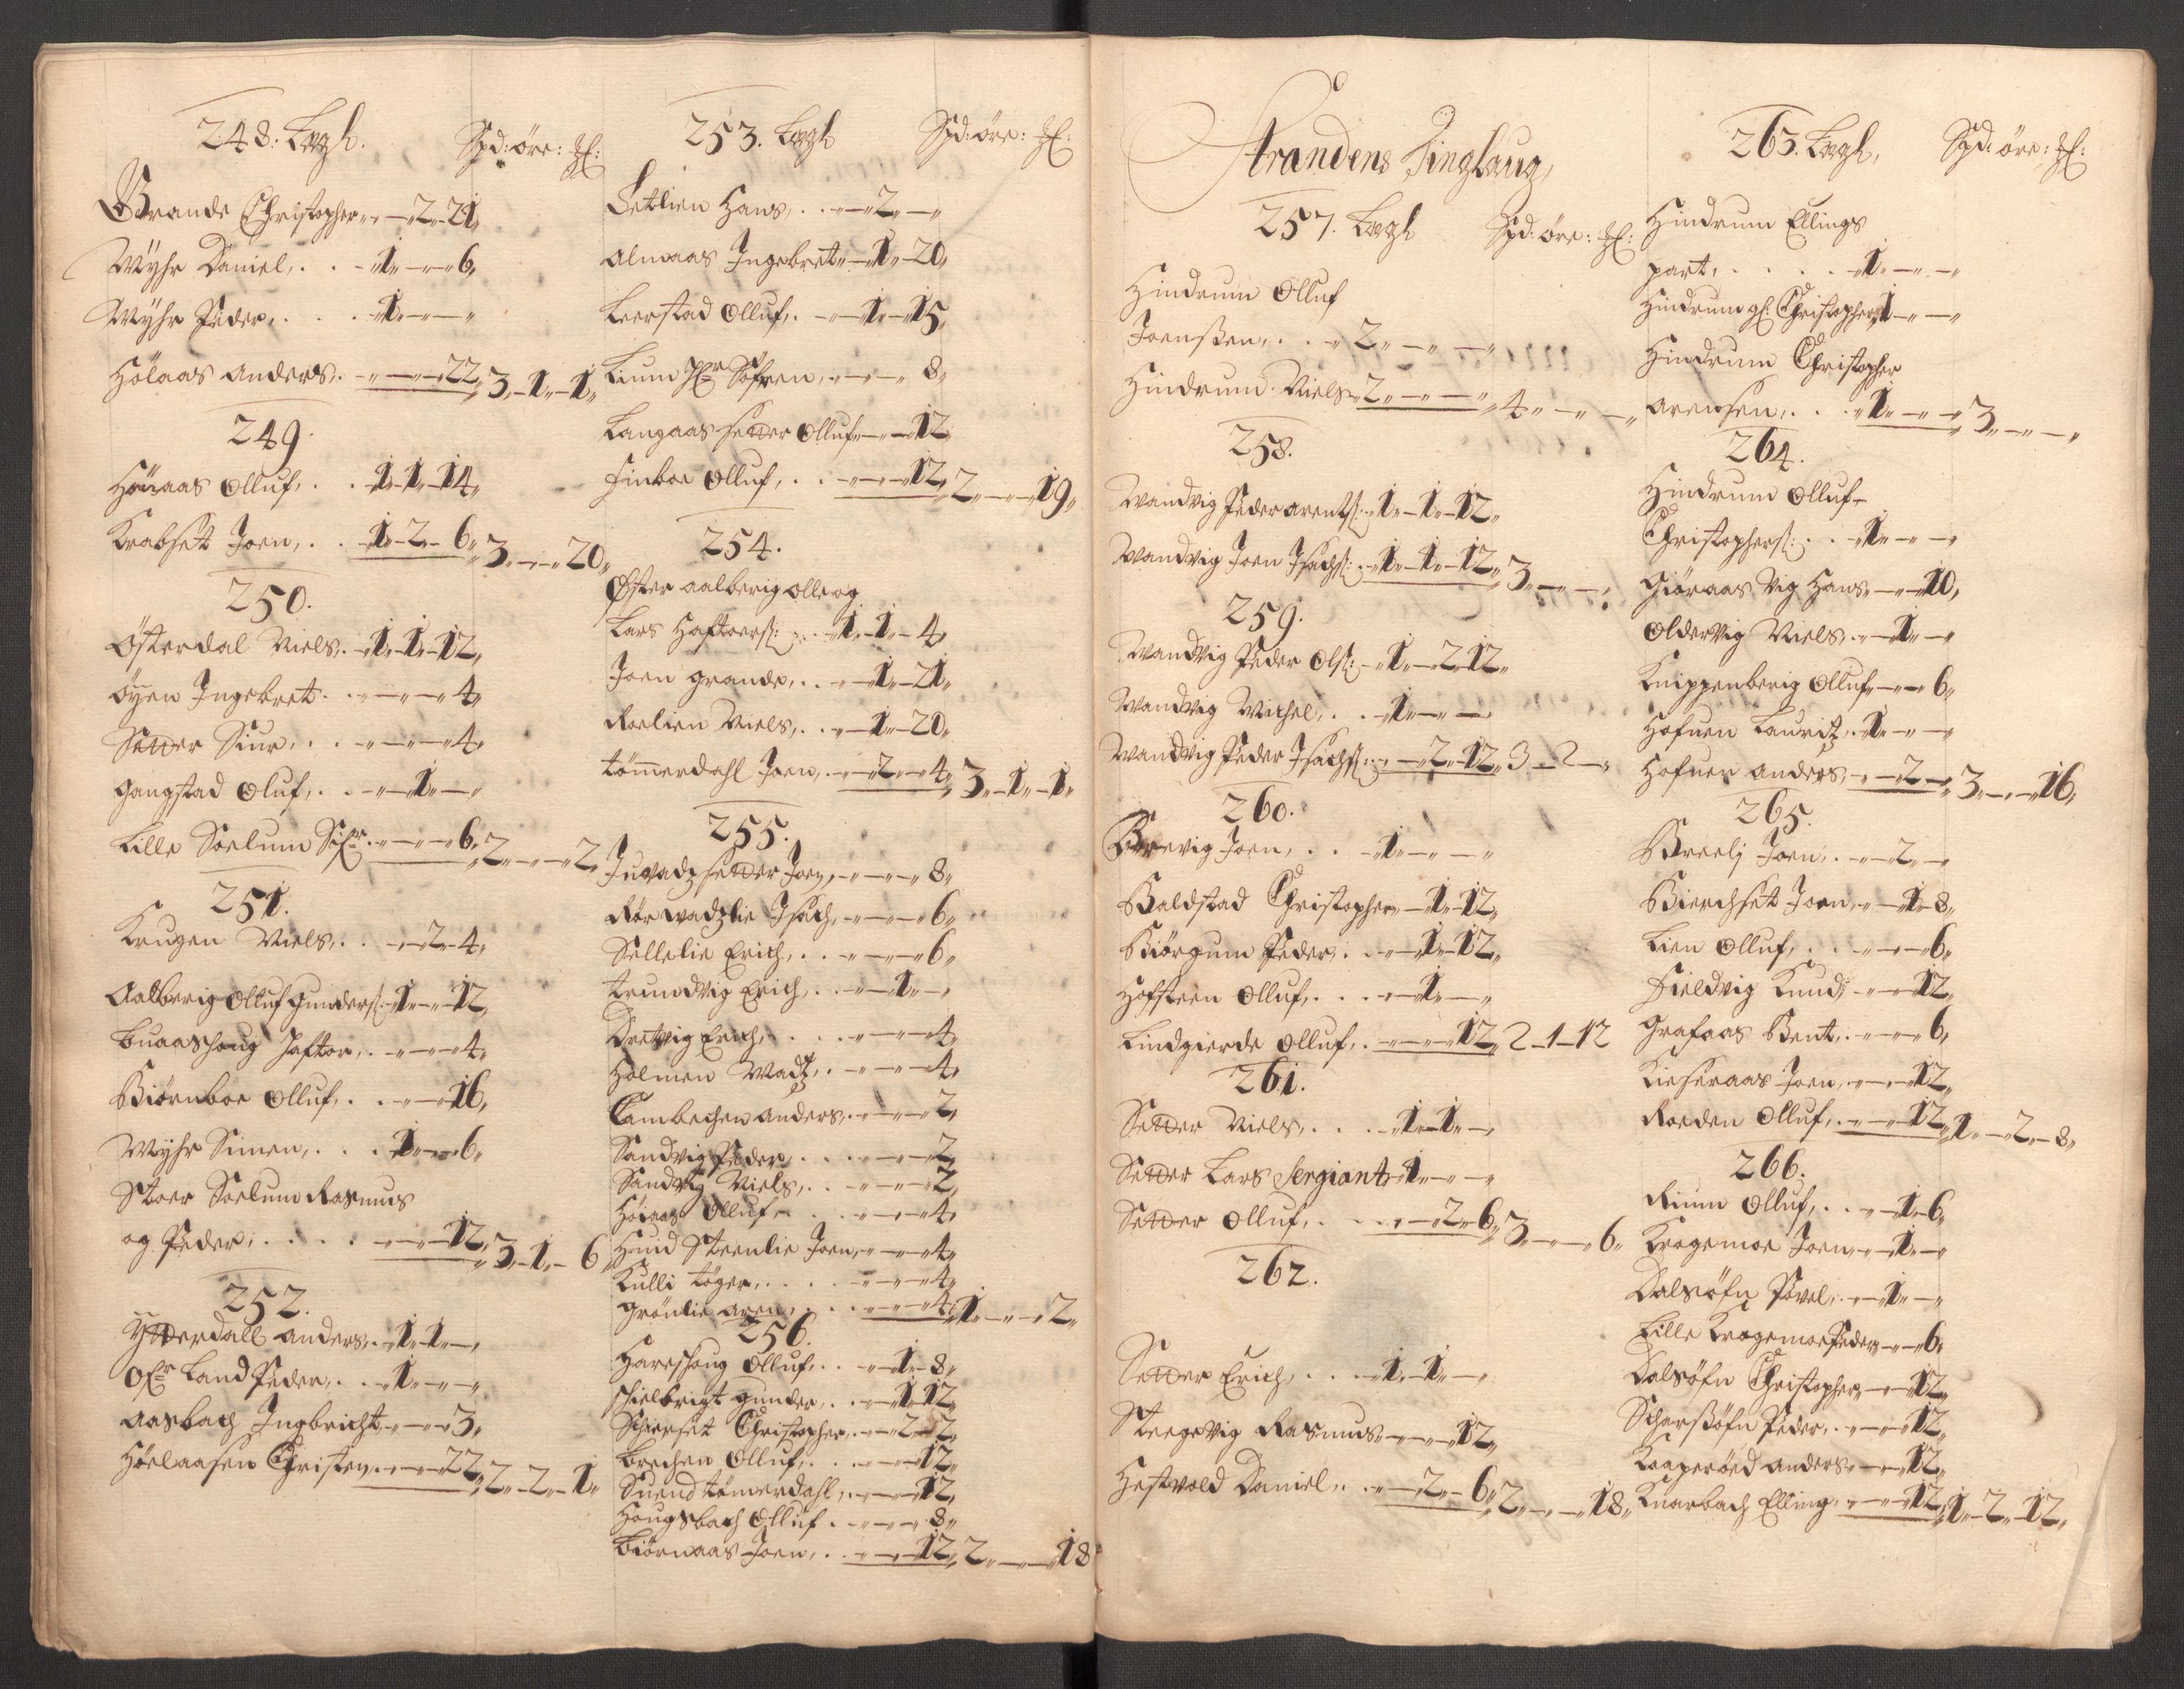 248: Lægl. Spd: öre: :
Grande Christopher „ – 2 „ 21 „
Myhr Daniel, . . „ 1 „ – „ 6 „
Myhr Peder, . . . „ 1 „ – „ – „
Hölaas Anders. „ – „ – „ 22 „ 3 „ – 1 „ – 1 „
249.
Hönaas Olluf, . . „ 1 „ 1 „ 14 „
Krabset Joen, . . „ 1 – 2 – 6 „ 3 „ – „ – 20 „
250.
Österdal Niels, . „ 1 „ 1 „ 12 „
Öyen Ingebret. . „ – „ – „ 4 „
Setter Siur, . . „ – „ – „ 4 „
Gangstad Oluf, . . „ – „ 1 „ – „
Lille Soelum . „ – „ – „ 6 „ 2 „ – „ – „ 2 „
251.
Krugen Niels, . . „ – „ 2 – 4 „
Aalberig Olluf Gunders: 1 „ – „ 12 „
Buaashoug Jaftor, . „ – „ – „ 4 „
Biörnboe Olluf, . . „ – „ – „ 16 „
Myhr Simen, . . . 1 „ – „ 6 „
Stoer Soelum Rasmus
og Peder, . . . . . „ – „ – „ 12 „ 3 „ – 1 „ – 6 „
252.
Ytterdall Anders, . „ 1 „ 1 „ – „
Land Peder, . . „ 1 „ – „ – „
Aasbach Ingbricht „ – „ – „ 3 „
Höelaasen Christen. – „ – „ 22 „ 2 „ – 2 „ – 1 „
253. Lægl Spd: öre: :
Setlien Hans, . . „ – „ 2 „ – „
Almaas Ingebret „ – „ 1 „ – 20 „
Leerstad Olluf, . „ – „ 1 „ – 15 „
Lium Söfren, „ – „ – „ 8 „
Langaas setter Olluf „ – „ 12 „
Finboe Olluf, . . „ – „ – „ 12 „ 2 „ – „ – 19 „
254.
Öster aalberig Olle og
Lars Haftoers: . „ 1 „ 1 „ – 4 „
Joen Grande, . . „ – „ 1 „ – 21 „
Roelien Niels, . . „ – „ 1 „ – 20 „
tömmerdahl Joen, „ – „ 2 „ – 4 „ 3 „ – 1 „ – 1 „
255.
Juvadz setter Joen, „ – „ – „ 8 „
Rörwadzlie Isach, „ – „ – „ 6 „
Sellelie Erich, . . „ – „ – „ 6 „
trundvig Erich, . „ – „ 1 „ – „
Dretvig Erich, . . . „ – „ – „ 4 „
Holmen Madtz, . „ – „ – „ 4 „
Cambechen Anders, . „ – „ – „ 2 „
Sandvig Peder, . . . „ – „ – „ 2 „
Sandvig Niels, . . „ – „ – „ 2 „
Höiaas Olluf, . . „ – „ – „ 4 „
Hund Steenlie Joen, „ – „ – „ 4 „
Kulli töger, . . . . „ – „ – „ 4 „
Grönlie Aren, . . . „ – „ – „ 4 „ 1 „ – „ – 2 „
256.
Hareshoug Olluf, . . „ – „ 1 „ – 8 „
Schielbrigt Gunder, . . „ – „ 1 „ 12 „
Schierset Christopher, . „ – „ 2 „ 2 „
Brechen Olluf, . . . „ – „ – „ 12 „
Suend tömerdahl, . „ – „ – „ 12 „
Hougsbach Olluf . „ – „ – „ 8 „
Biörnaas Joen, . . „ – „ – „ 12 „ 2 „ – „ – 18
Strandens Tinglaug,
257. Lægl Spd: öre: :
Hindrum Olluf
Joenssen, . . „ 2 „ – „ – „
Hindrum Niels „ 2 „ – „ – „ 4 „ – „ – „
258.
Wandvig Peder Arents: 1 „ – 1 „ – 12 „
Wandvig Joen Isachs: 1 „ – 1 „ – 12 „ 3 „ – „ – „
259.
Wandvig Peder Ols: „ 1 „ – 2 „ 12 „
Wandvig Michel, . . „ 1 „ – „ – „
Wandvig Peder Isachs: „ – „ 2 „ 12 „ 3 – 2 – „
260.
Brevig Joen, . . „ 1 „ – „ – „
Baldstad Christopher „ – 1 „ 12 „
Biörgum Peder, . . „ – „ 1 „ – 12 „
Hofsteen Olluf, . . . „ – „ 1 „ – „
Lindgierde Olluf, . „ – „ – „ 12 „ 2 – 1 – 12
261.
Setter Niels, . . . „ 1 „ 1 „ – „
Setter Lars Sergiant „ 1 „ – „ – „
Setter Olluf, . . . „ – „ 2 „ 6 „ 3 „ – „ – 6 „
262.
Setter Erich, . . . „ 1 „ 1 „ – „
Steegevig Rasmus „ – „ – „ 12 „
Hestvold Daniel, . . „ – „ 2 „ – 6 „ 2 „ – „ – 18 „
263. Lægl, Spd: öre: :
Hindrum Ellings
part, . . . . . „ 1 „ – „ – „
Hindrum gl: Christopher 1 „ – „ – „
Hindrum Christopher
Arensen, . . . „ 1 „ – „ – „ 3 „ – „ – „
264.
Hindrum Olluf –
Christophers: . . „ 1 „ – „ – „
Giöraas Vig Hans „ – „ 10 „
Oldervig Niels, . „ – „ 1 „ – „
Knippenberig Olluf „ – „ – 6 „
Hofuen Lauritz, . „ 1 „ – „ – „
Hofuen Anders, „ – „ 2 – „ 3 „ – „ – 16 „
265.
Breeli Joen, . . „ – „ 2 „ – „
Bierchset Joen, „ – „ 1 „ – 8 „
Lien Olluf, . . „ – „ – „ 6 „
Fieldvig Knud, „ – „ – „ 12 „
Grafaas Bent, . „ – „ – „ 6 „
Kieseraas Joen, „ – „ – „ 12 „
Roeden Olluf, „ – „ – „ 12 „ 1 „ – 2 „ – 8 „
266.
Rium Olluf, . . . „ – „ 1 „ 6 „
Kragemoe Joen, „ – „ 1 „ – „
Dalsöfn Povel, . „ – „ 1 „ – „
Lille Kragemoe Peder „ – „ 6 „
Dalsöfn Christopher, „ – „ 12 „
Scharssöfn Peder, . „ – „ – „ 12 „
Kaaperöed Anders „ – „ – „ 12 „
Knarbach Elling, „ – „ – „ 12 „ 1 „ – 2 „ – 12 „